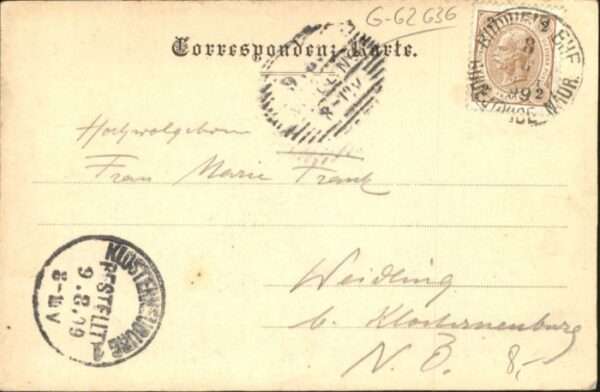 G-62 636
Correspondenz-Karte.
Hochwolgeboren
Frau Marie Frank
Weidling
b. Klosterneuburg
N. Ö. 8,-
KLOSTERNEUBURG
BESTELLT
9.8.99
8-11V